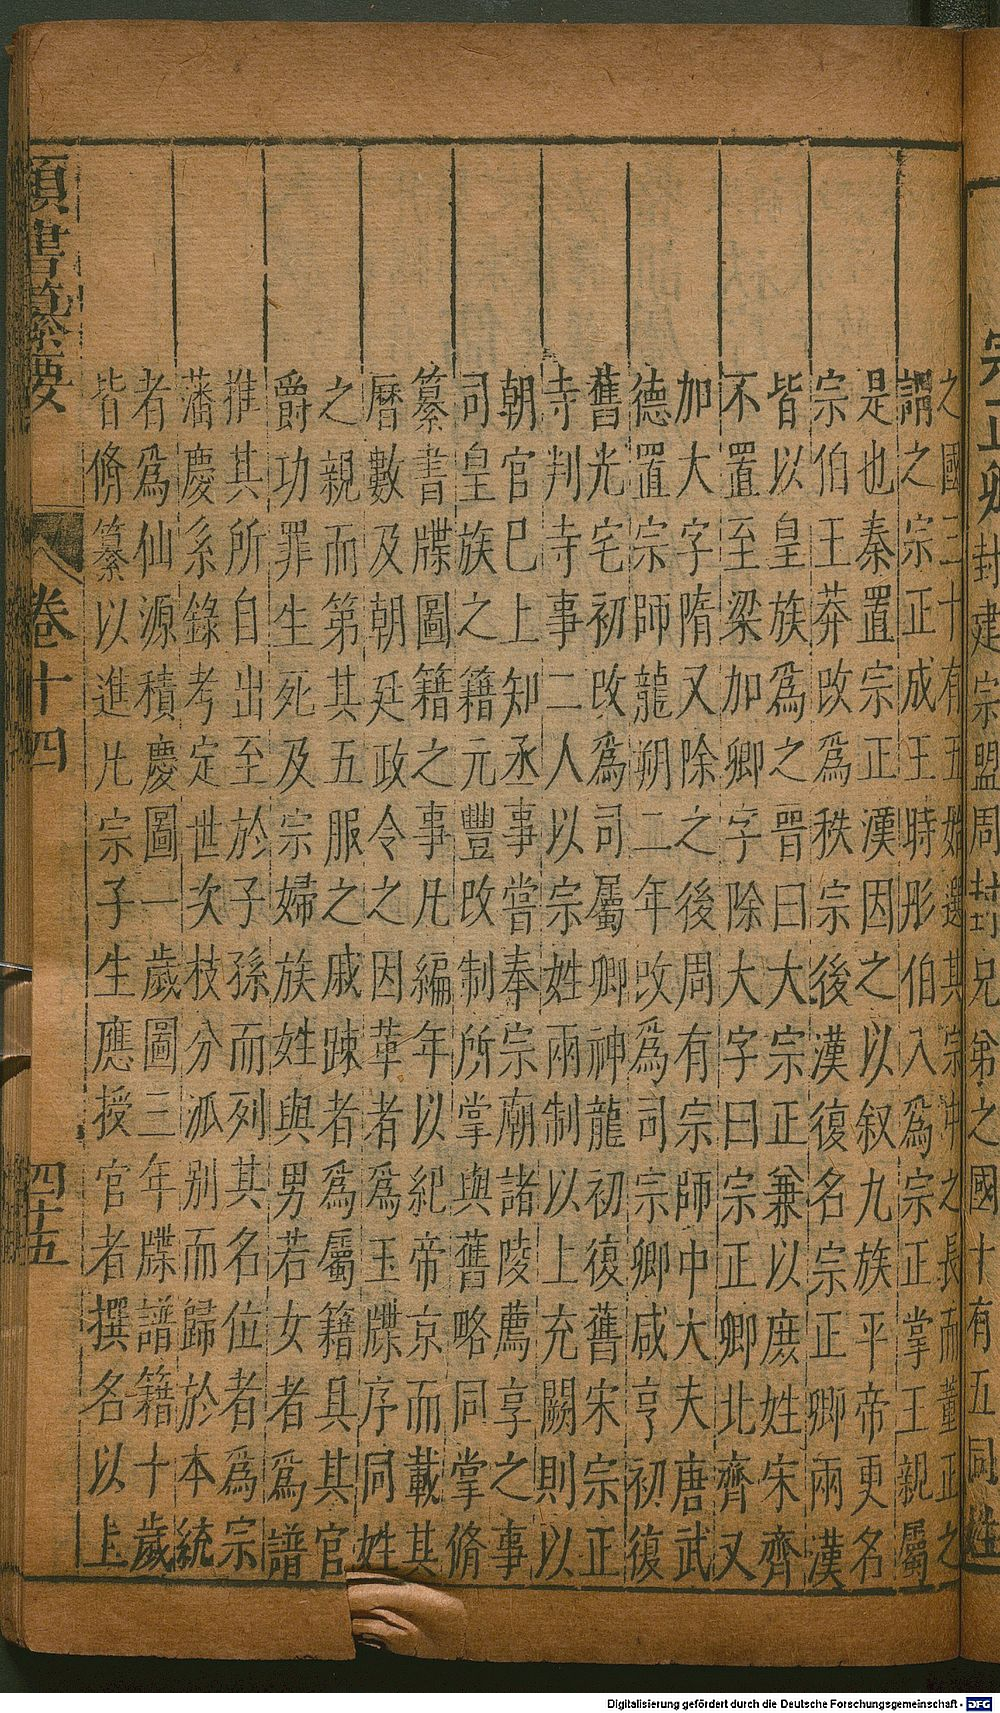 宗正卿封建宗盟周封兄弟之國十有五同姓
之國三十有五始選其宗中之長而董正之
謂之宗正成王時彤伯入爲宗正掌王親屬
是也秦置宗正漢因之以叙九族平帝更名
宗伯王莽改爲秩宗後漢復名宗正卿兩漢
皆以皇族爲之晋曰大宗正兼以庶姓宋齊
不置至梁加卿字除大字曰宗正卿北齊又
加大字隋又除之後周有宗師中大夫唐武
德置宗師龍朔二年改爲司宗卿咸亨初復
舊光宅初改爲司屬卿神龍初復舊宋宗正
寺判寺事二人以宗姓兩制以上充闕則以
朝官已上知丞事嘗奉宗廟諸陵薦享之事
司皇族之籍元豐改制所掌與舊略同掌脩
纂書牒圖籍之事凡編年以紀帝京而載其
曆數及朝廷政令之因革者爲玉牒序同姓
之親而第其五服之戚踈者爲屬籍具其官
爵功罪生死及宗婦族姓與男若女者爲譜
推其所自出至於子孫而列其名位者爲宗
藩慶系錄考定世次枝分派别而歸於本統
者爲仙源積慶圖一歲圖三年牒譜籍十歲
皆脩纂以進凡宗子生應授官者撰名以上
類書纂要 卷十四 四十五
Digitalisierung gefördert durch die Deutsche Forschungsgemeinschaft - DFG